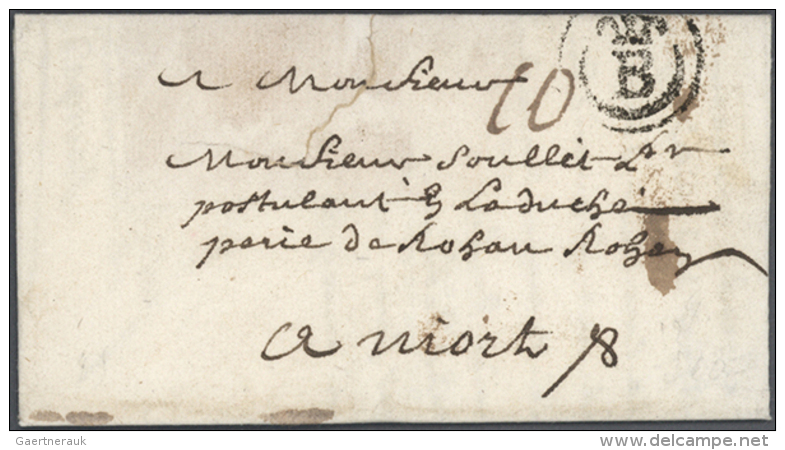 A Monsieur
10
Monsieur Soullet
postulant à Laduché
perie de Rohan Rohan
A niort
Gaertnerauk
© delcampe.net